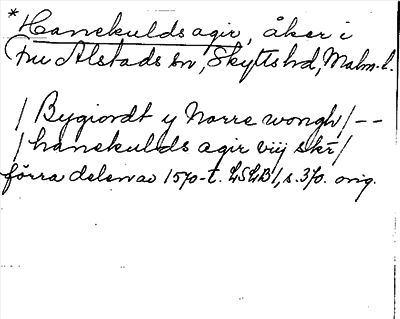 *Hanekulds agir, åker i
Fru Alstads sn, Skytts hd, Malm. l.
/Bygiordt y Norre wongh/--
/hanekulds agir viij skr/
förra delen av 1570-t. LSLB1, s. 370. orig.